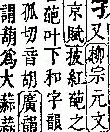 又柳宗元文
京賦抜紅葩之
葩叶下和字韻
孤切音胡廣韻
謂葫為大蒜蒜